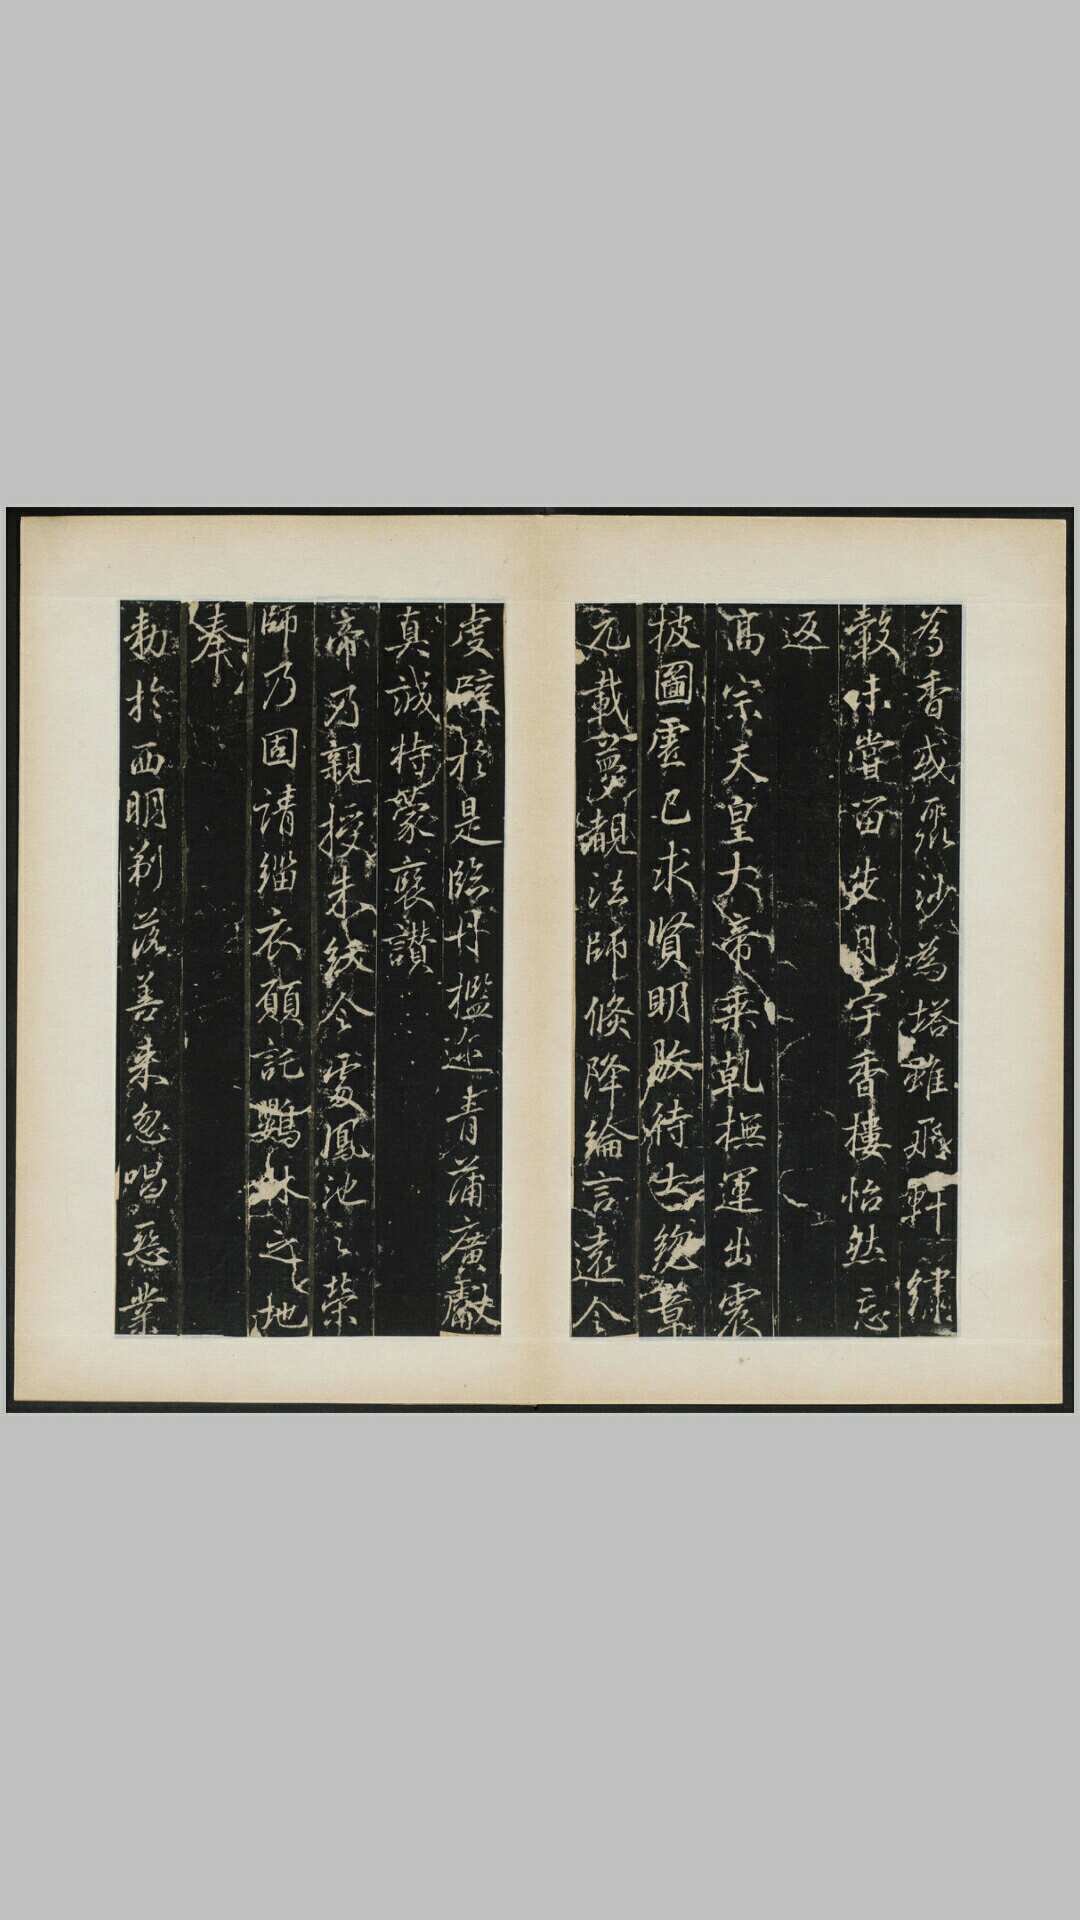 為香或聚沙為塔雖飛軒繡
轂味嘗留步月宇香樓怡然忘
返
高宗天皇大帝乘乾撫運出震
披圖虛己求賢明敭待士總章
元載夢覩法師倏降綸言遠令
虔辟於是臨丹檻近青蒲廣獻
真誠特蒙褒讃
帝乃親授朱紱令處鳳池之榮
師乃固請緇衣願託鷄林之地
奉
勅於西明剃落善來忽唱惡業